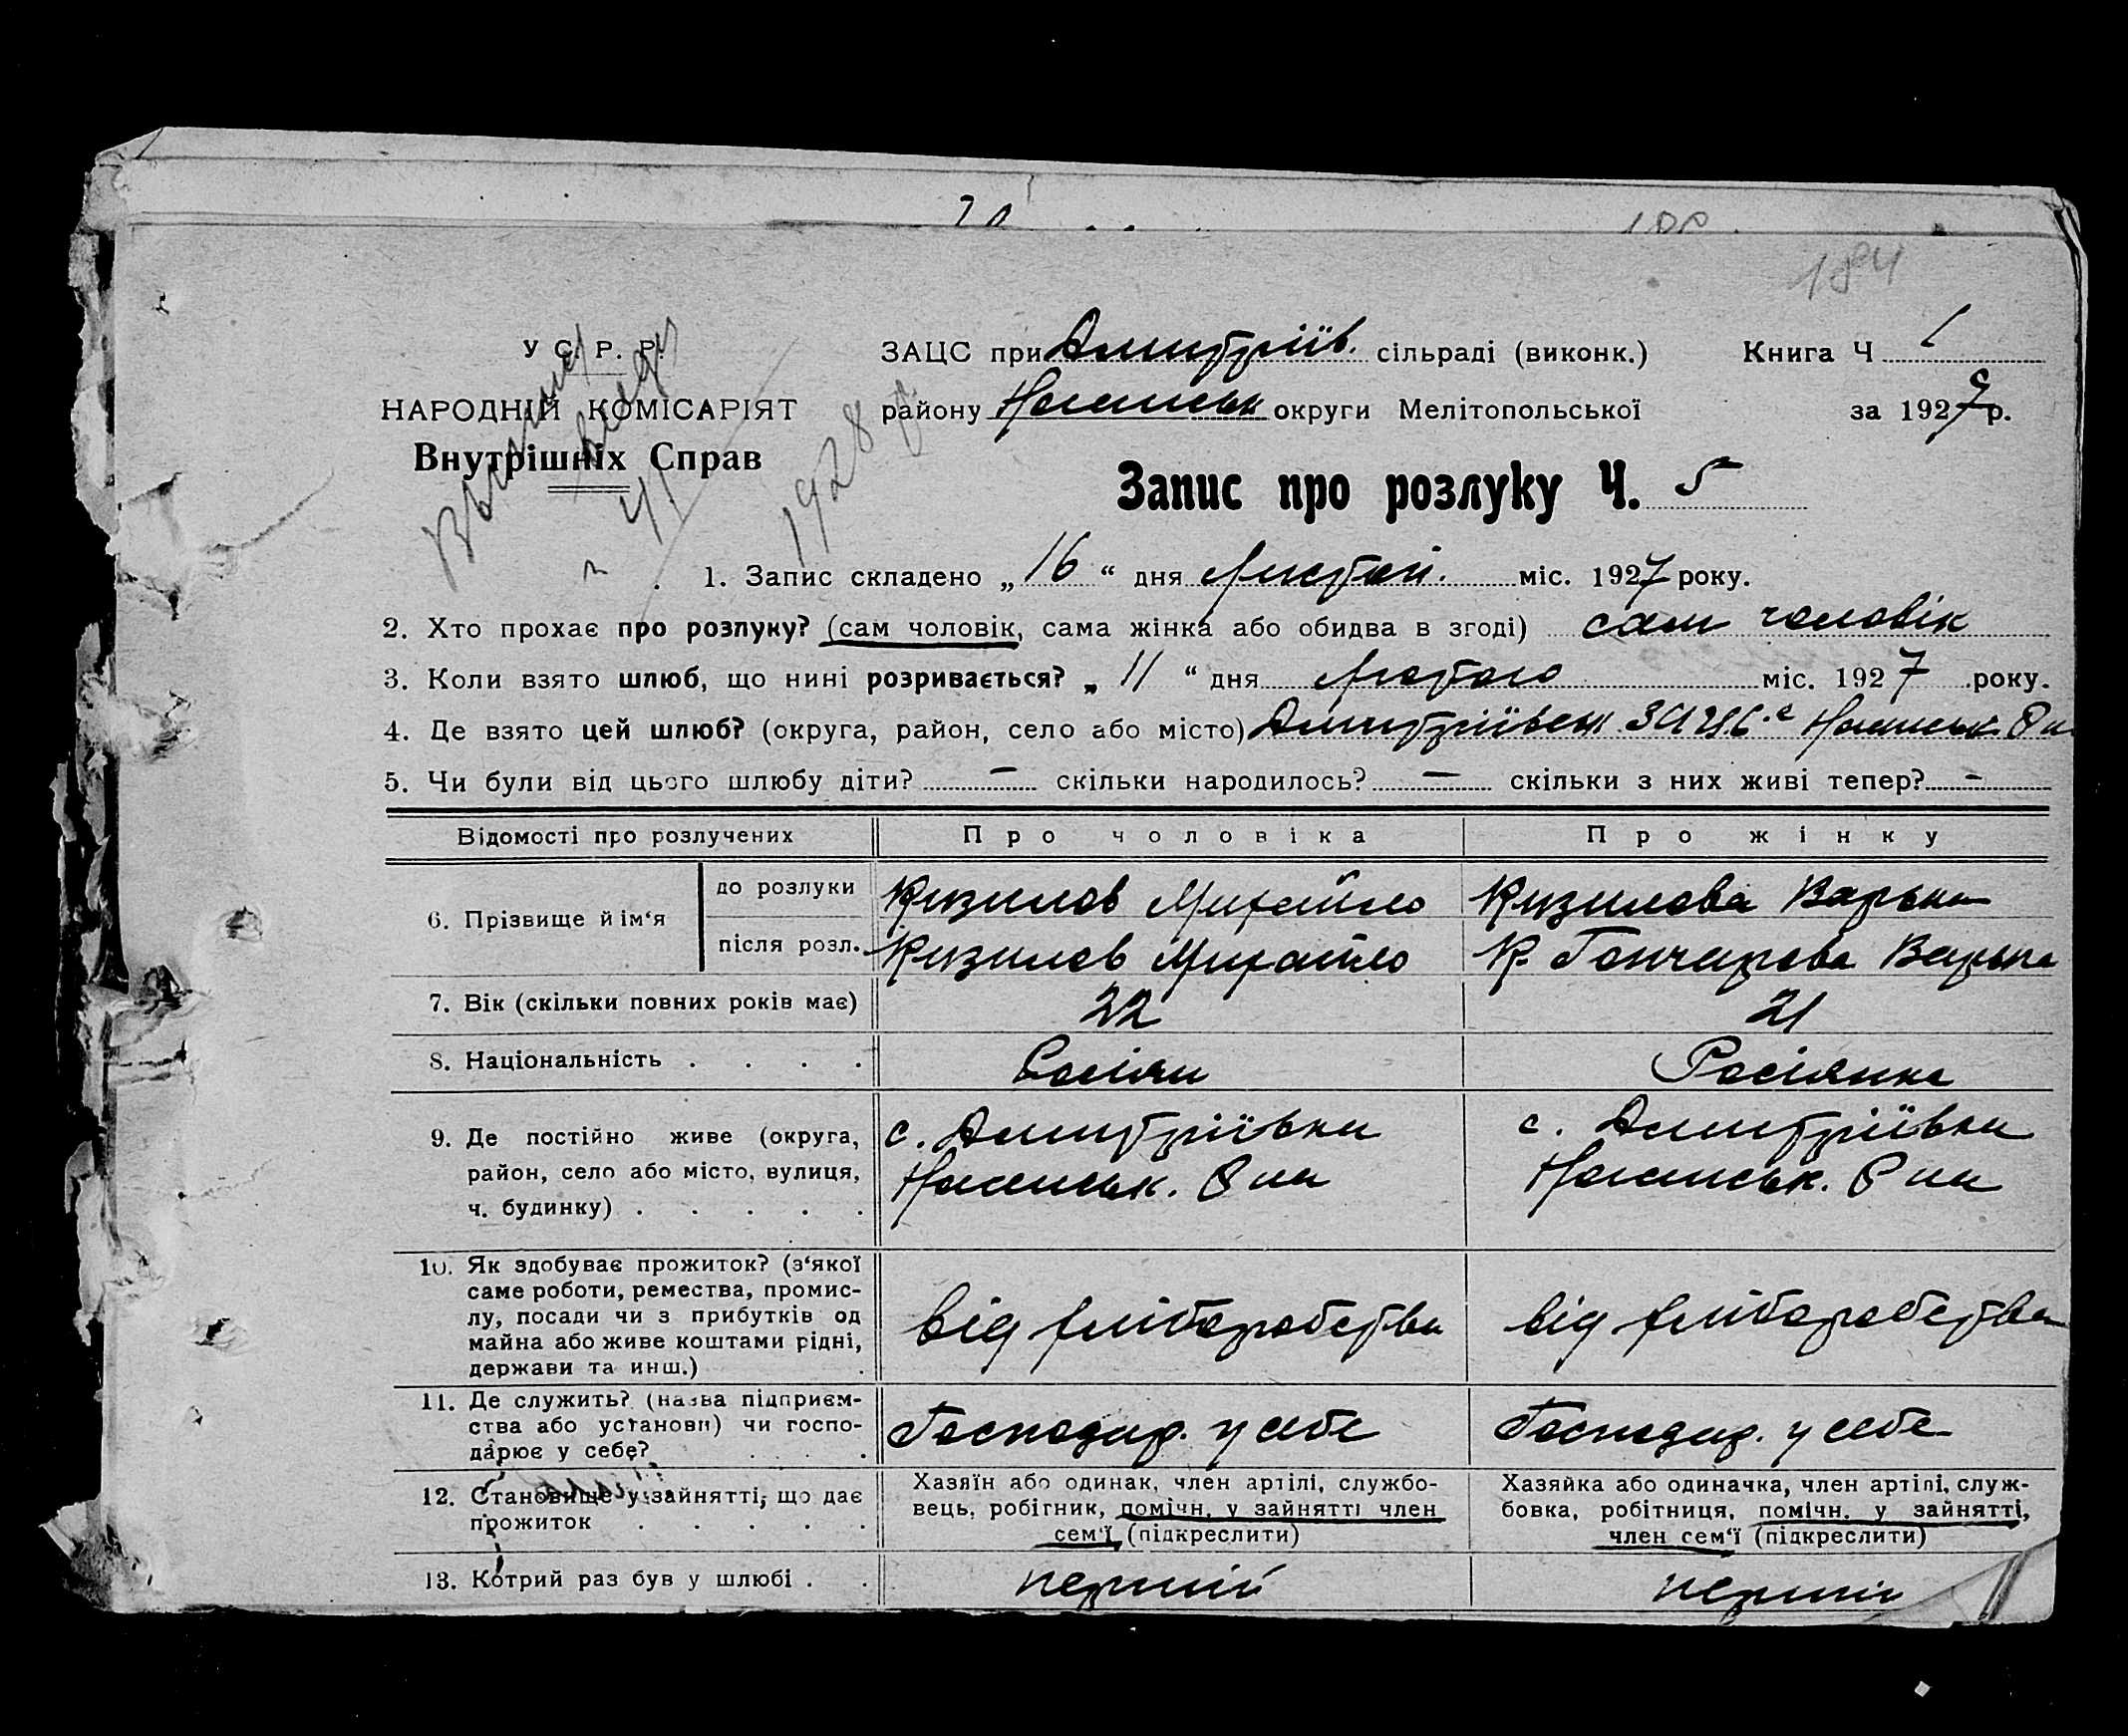 184
У С. Р. Р.
НАРОДНІЙ КОМІСАРІЯТ
Внутрішніх Справ
1928 р
ЗАЦС при Дмитріїв. сільраді (виконк.) Книга Ч 1
району Ногайськ округи Мелітопольської за 1927 р.
Запис про розлуку Ч. 5
1. Запис складено „ 16 “ дня міс. 1927 року.
2. Хто прохає про розлуку? (сам чоловік, сама жінка або обидва в згоді) сам чоловік
3. Коли взято шлюб, що нині розривається? „ 11 “ дня Лютого міс. 1927 року.
4. Де взято цей шлюб? (округа, район, село або місто) Дмитріївськ. ЗАЦС Ногайськ. Р ну
5. Чи були від цього шлюбу діти? — скільки народилось? — скільки з них живі тепер? —
Відомості про розлучених Про чоловіка Про жінку
6. Прізвище й ім‘я до розлуки Кизилов Михайло Кизилова Варька
після розл. Кизилов Михайло К. Гончарова Варька
7. Вік (скільки повних років має) 22 21
8. Національність . . . . Росіян Росіянка
9. Де постійно живе (округа, с. Дмитріївки с. Дмитріївки
район, село або місто, вулиця, Ногайськ. Р ну Ногайськ. Р ну
ч. будинку) . . . . .
10. Як здобуває прожиток? (з‘якої
саме роботи, ремества, промис-
лу, посади чи з прибутків од
майна або живе коштами рідні,
держави та инш.)
від хліборобства від хліборобства
11. Де служить? (назва підприєм-
ства або установи) чи госпо-
дарює у себе? . . . .
Господар. у себе Господар. у себе
12. Становище у зайнятті, що дає
прожиток . . . . .
Хазяїн або одинак, член артілі, службо-
вець, робітник, помічн. у зайнятті член
сем‘ї (підкреслити)
Хазяйка або одиначка, член артілі, служ-
бовка, робітниця, помічн. у зайнятті,
член сем‘ї (підкреслити)
13. Котрий раз був у шлюбі . . перший перший